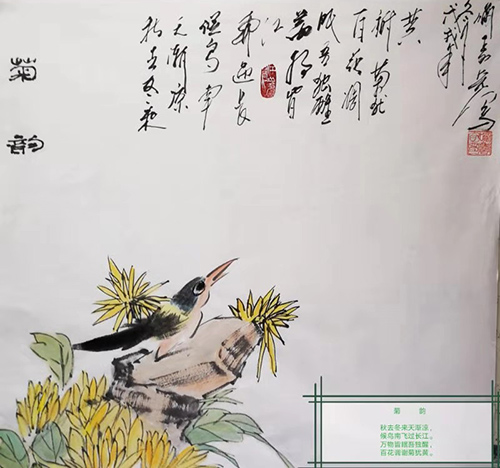 菊韵
秋去冬来
天渐凉
候鸟南
飞过长
江
万物皆
眠吾独醒
百花凋
谢菊犹
黄
戊戌年
菊 韵
秋去冬来天渐凉，
候鸟南飞过长江。
万物皆眠吾独醒，
百花凋谢菊犹黄。